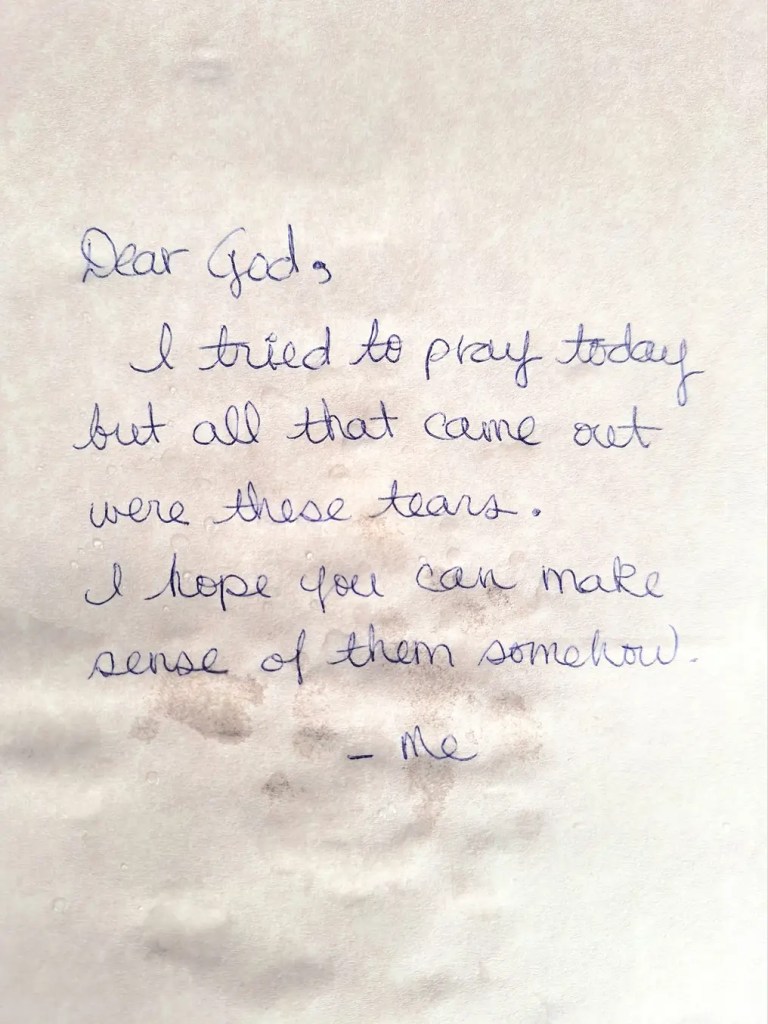 Dear God,
I tried to pray today
but all that came out
were these tears.
I hope you can make
sense of them somehow.
- Me